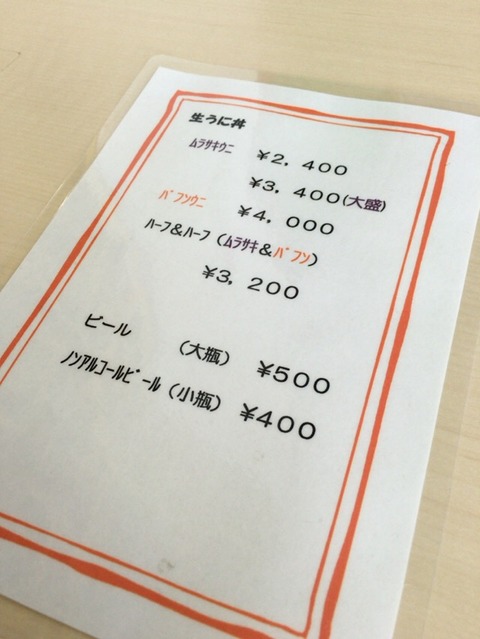 生うに丼
ﾑﾗｻｷｳﾆ ￥２，４００
￥３，４００(大盛)
ﾊﾞﾌﾝｳﾆ ￥４，０００
ﾊｰﾌ&ﾊｰﾌ（ﾑﾗｻｷ&ﾊﾞﾌﾝ）
￥３，２００
ビール （大瓶） ￥５００
ﾉﾝｱﾙｺｰﾙﾋﾞｰﾙ（小瓶） ￥４００